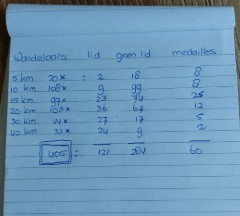 Wandelaars lid geen lid medailles
5 km 20x : 2 18 8
10 km 108x 9 99 8
15 km 97x 23 74 25
20 km 103x 36 67 12
30 km 44x 27 17 5
40 km 33x 24 9 2
405 : 121 284 60